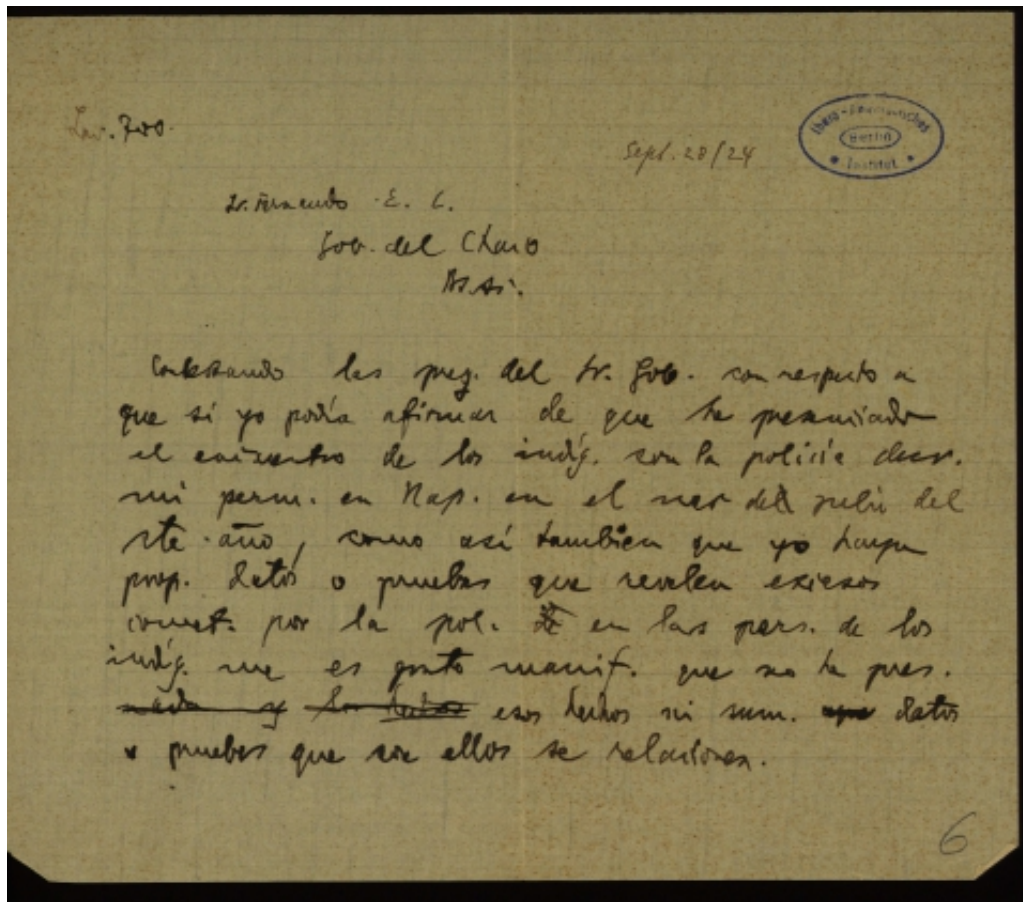 Sept. 28/24
Ibero-Amerikanisches
Berlin
Institut
Dr. Fernando E. C.
Gob. del Chaco
Bs. As.
Contestando las preg. del Sr. Gob. con respecto a
que si yo podía afirmar de que he presenciado
el encuentro de los indíg. con la policía dur.
mi perm. en Nap. en el mes del julio del
ste. año, como así tambien que yo haya
prop. datos o pruebas que revelen excesos
comet. por la pol. en las pers. de los
indíg. me es grato manif. que no he pres.
esos hechos ni sum. datos
o pruebas que con ellos se relacionen.
6